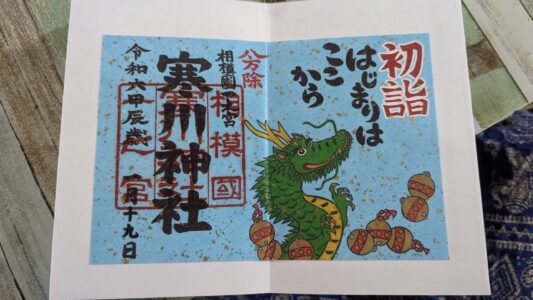 初詣
はじまりは
ここ
から
八方除
相模國一之宮
寒川神社
相模國
一之宮
令和六甲辰歳 一月十九日